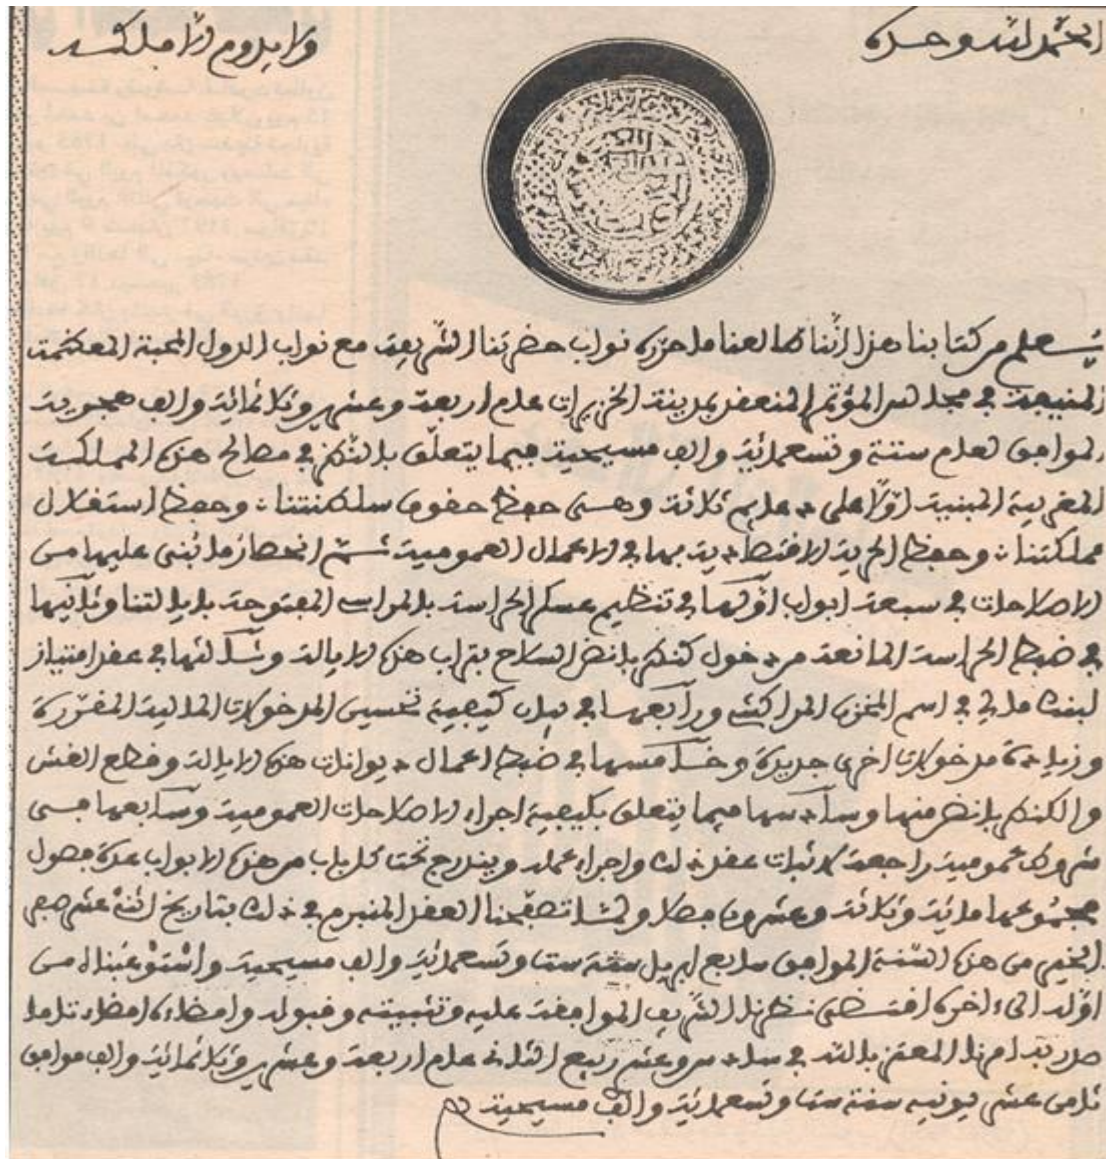 الحمد لله وحده
ولا يدوم الا ملكه
يعلم من كتابنا هذا اننا طالعنا ما حرره نواب حضرتنا الشريفة مع نواب الدول المحبة المعظمة
المنيفة في مجلس المؤتمر المنعقد بمدينة الخزيرات عام اربعة وعشرين وثلاثمائة والف هجرية
الموافق لعام ستة وتسعمائة والف مسيحية فيما يتعلق بالنظر في مصالح هذه المملكة
المغربية المبنية اولا على دعايم ثلاثة وهي حفظ حقوق سلطنتنا، وحفظ استقلال
مملكتنا، وحفظ الحرية الاقتصادية بها في الاعمال العمومية ثم انحصار ما انبنى عليها من
الاصلاحات في سبعة ابواب اولها في تنظيم عسكر الحراسة بالمراسي المفتوحة بايالتنا وثانيها
في ضبط الحراسة المانعة من دخول كنطربانض السلاح بتراب هذه الايالة وثالثها في عقد امتياز
لبنك مالي في اسم المخزن المراكشي ورابعها في بيان كيفية تحسين المدخولات المالية المقررة
وزيادة مدخولات اخرى جديدة وخامسها في ضبط اعمال ديوانات هذه الايالة وقطع الغش
والكنطربانض منها وسادسها فيما يتعلق بكيفية اجراء الاصلاحات العمومية وسابعها في
شروط عمومية راجعة لاثبات عقد ذلك واجراء عمله ويندرج تحت كل باب من هذه الابواب عدة فصول
مجموعها مائة وثلاثة وعشرون فصلا ولما تصفحنا العقد المنبرم في ذلك بتاريخ اثنى عشر صفر
الخير من هذه السنة الموافق سابع ابريل سنة ست وتسعمائة والف مسيحية واستوعبناه من
اوله الى ءاخره اقتضى نظرنا الشريف الموافقة عليه وتثبيته وقبوله وامضاءه امضاء تاما
صدر به امرنا المعتز بالله في سادس وعشري ربيع الثاني عام اربعة وعشرين وثلاثمائة والف موافق
ثامن عشر يونيه سنة ست وتسعمائة والف مسيحية